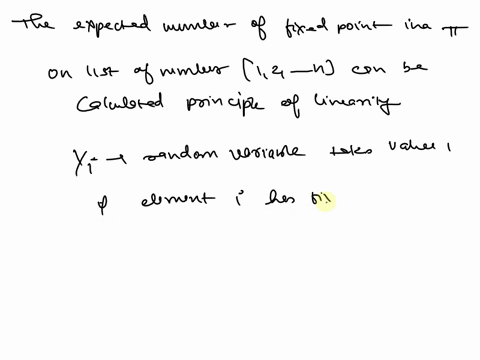 The expected number of fixed point in a π
on list of number [1, 2, — n] can be
Calculated principle of linearity
Yi → random variable takes value 1
if element i has fix